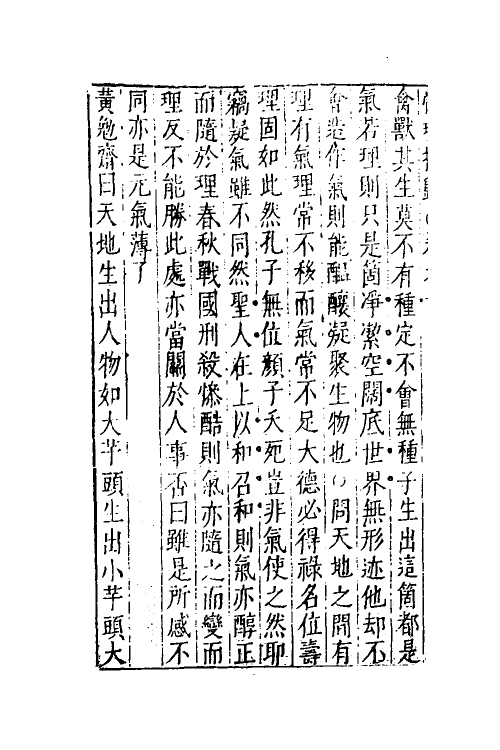 禽獸其生莫不有種定不會無種子生出這箇都是
氣若理則只是箇凈潔空闊底世界無形迹他却不
會造作氣則能醞釀凝聚生物也○問天地之間有
理有氣理常不移而氣常不足大德必得祿名位壽
理固如此然孔子無位顏子夭死豈非氣使之然耶
竊疑氣雖不同然聖人在上以和召和則氣亦醇正
而隨於理春秋戰國刑殺慘酷則氣亦隨之而變而
理反不能勝此處亦當關於人事否曰雖是所感不
同亦是元氣薄了
黃勉齋曰天地生出人物如大芋頭生出小芋頭大